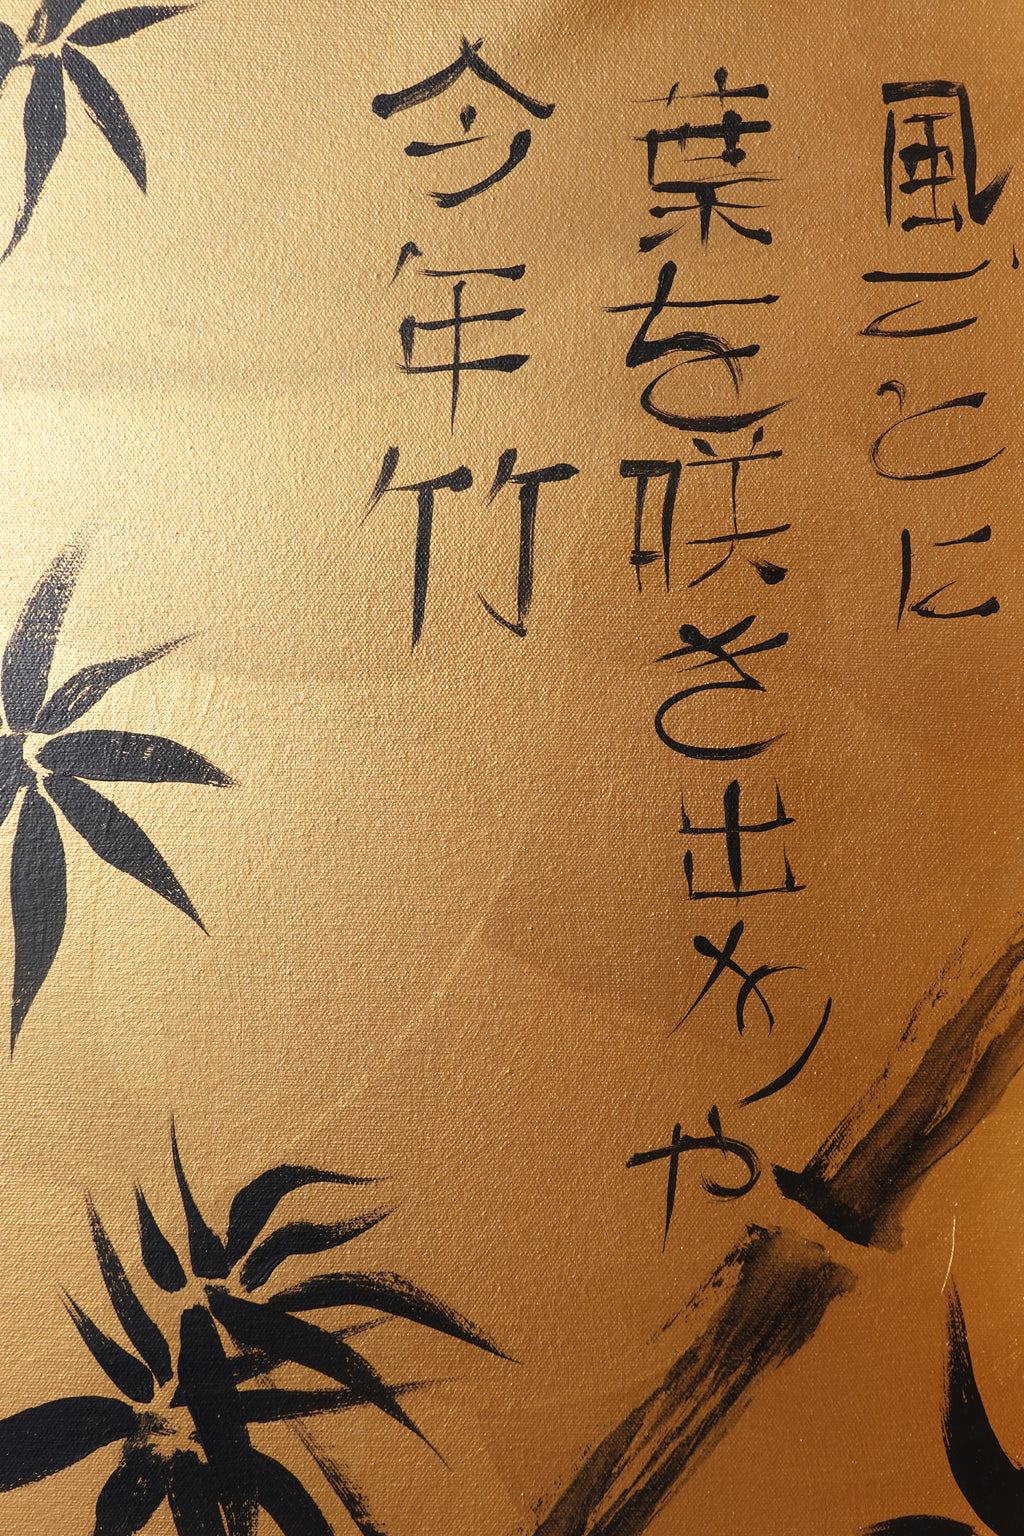 風ごとに
葉を咲き出めや
今年竹